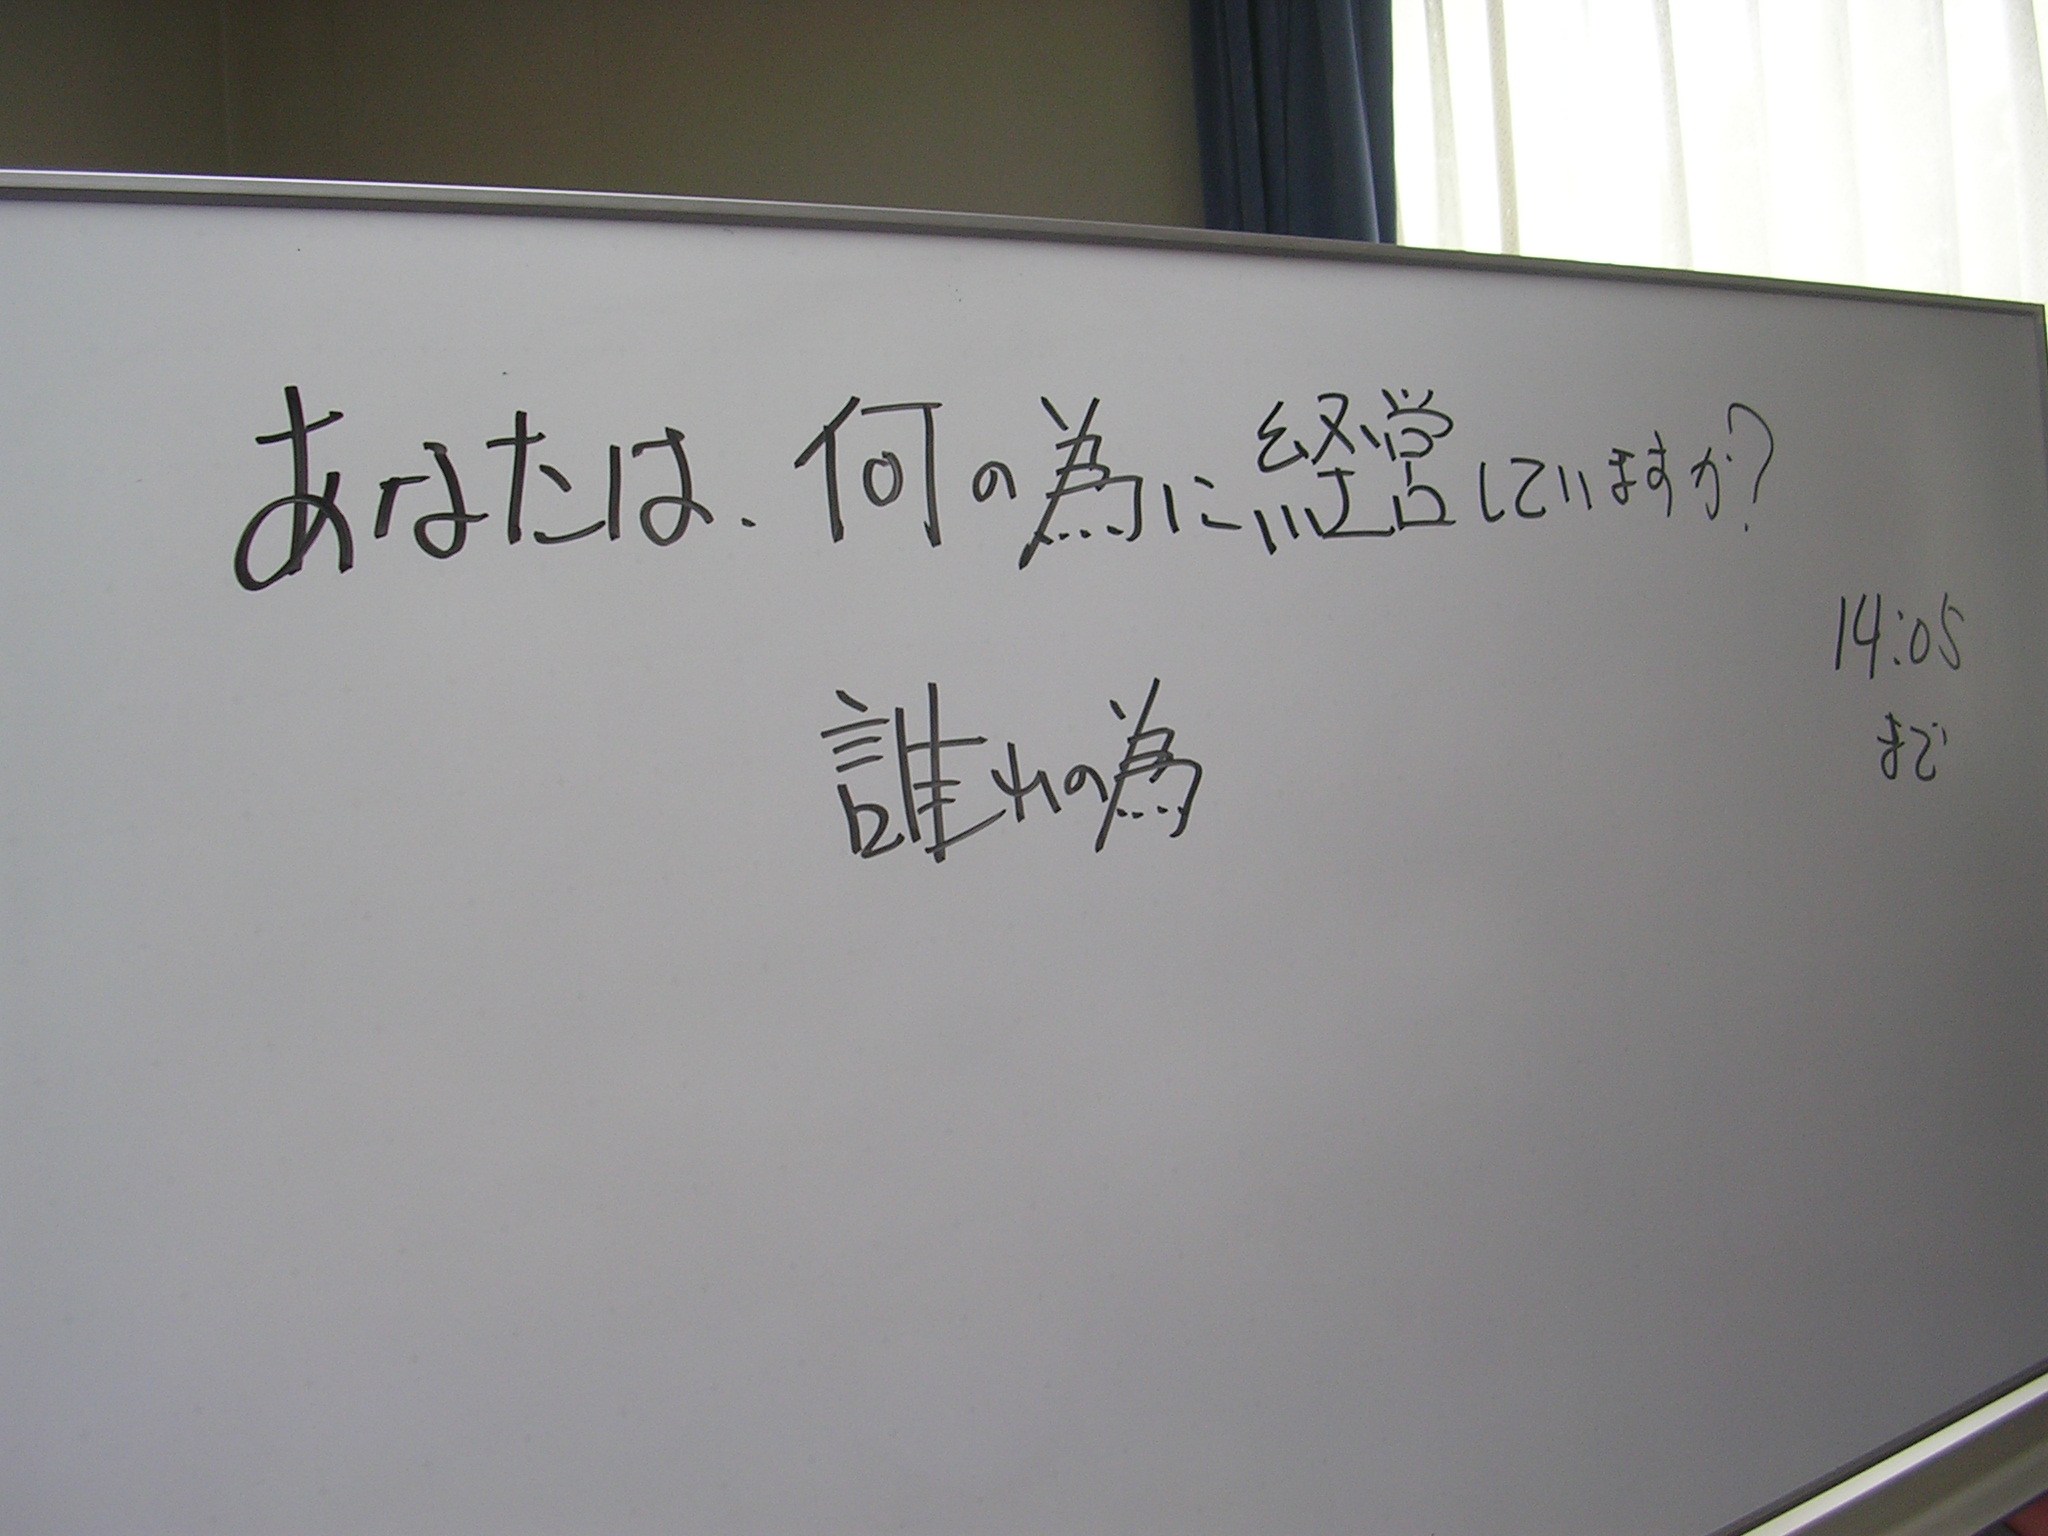 あなたは、何の為に経営していますか?
誰れの為
14:05
まで